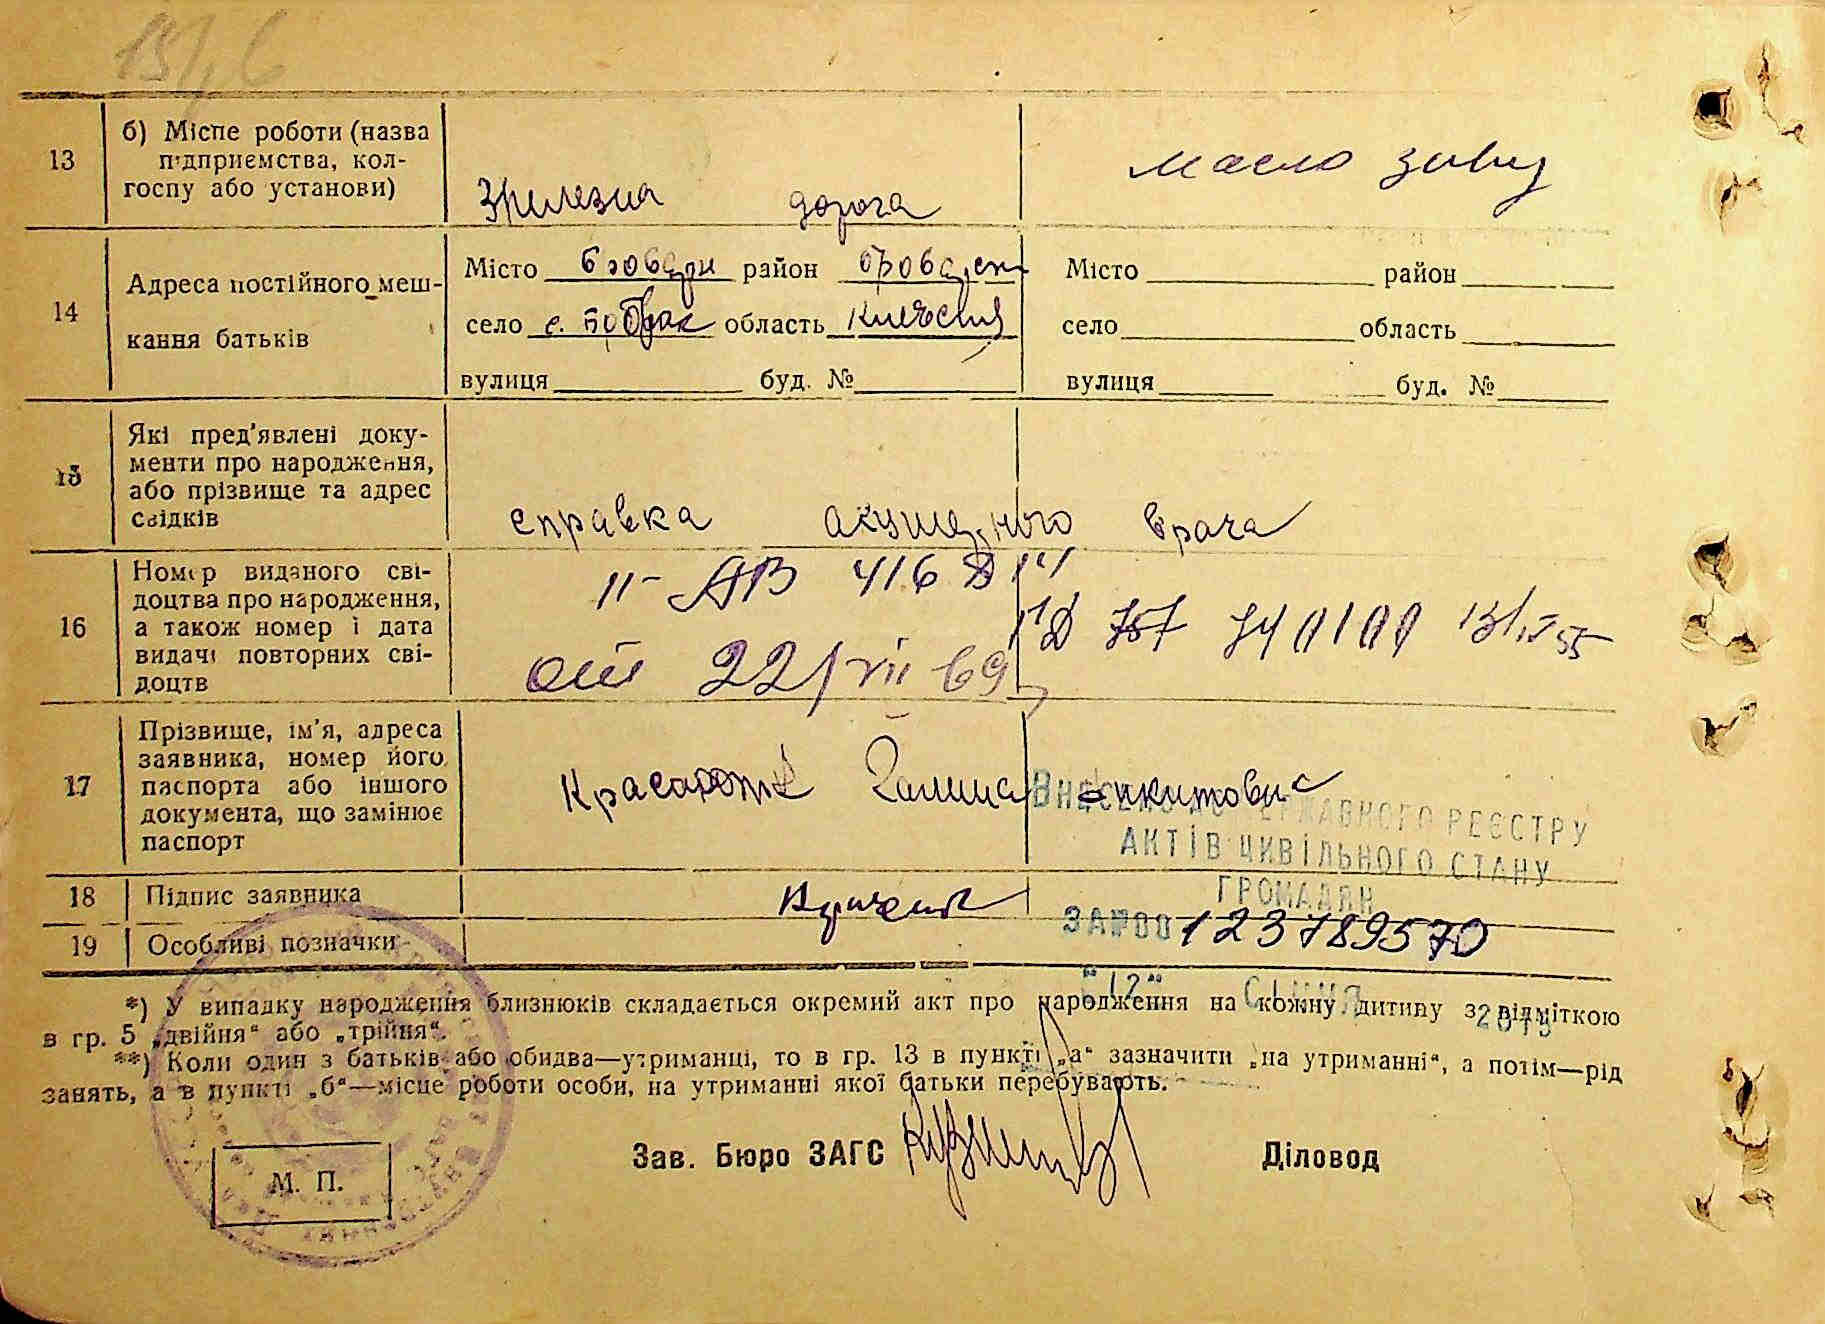 13
б) Місце роботи (назва
підприємства, кол-
госпу або установи)
дорога
масло
14
Адреса постійного меш-
кання батьків
Місто Бровари район
село с. область
вулиця буд. №
Місто район
село область
вулиця буд. №
15
Які пред'явлені доку-
менти про народження,
або прізвище та адрес
свідків
справка врача
16
Номер виданого сві-
доцтва про народження,
а також номер і дата
видачі повторних сві-
доцтв
II-АВ 416
22/VII 69
17
Прізвище, ім'я, адреса
заявника, номер його
паспорта або іншого
документа, що замінює
паспорт
ВНЕСЕНО ДО ДЕРЖАВНОГО РЕЄСТРУ
АКТІВ ЦИВІЛЬНОГО СТАНУ
ГРОМАДЯН
18
Підпис заявника
ЗА №00 123789570
19
Особливі позначки
"12" СІЧНЯ
*) У випадку народження близнюків складається окремий акт про народження на кожну дитину з відміткою
в гр. 5 „двійня“ або „трійня“.
**) Коли один з батьків або обидва—утриманці, то в гр. 13 в пункті „а“ зазначити „на утриманні“, а потім—рід
занять, а в пункті „б“—місце роботи особи, на утриманні якої батьки перебувають.
Зав. Бюро ЗАГС
Діловод
М. П.